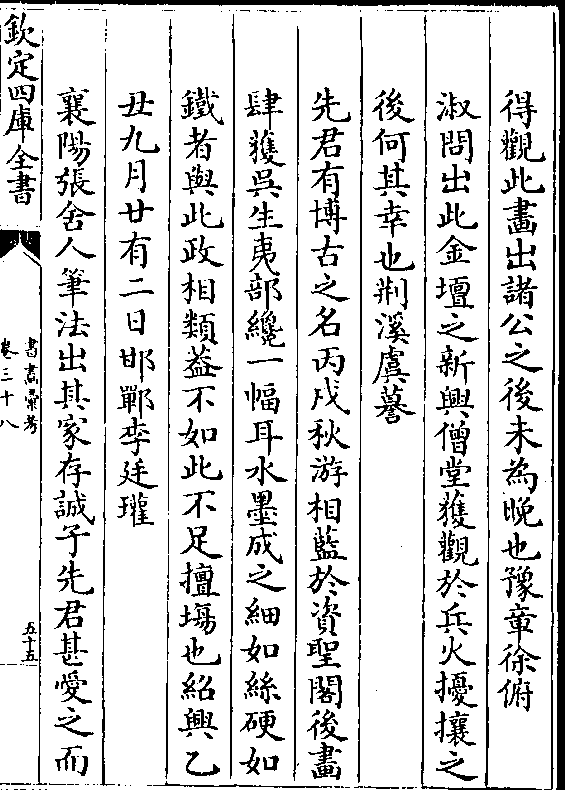 得觀此畫出諸公之後未為晚也豫章徐俯
淑問出此金壇之新興僧堂獲觀於兵火擾攘之
後何其幸也荆溪虞謩
先君有博古之名丙戌秋游相藍於資聖閣後畫
肆獲吳生夷部纔一幅耳水墨成之細如絲硬如
鐵者與此政相類葢不如此不足擅塲也紹興乙
丑九月廿有二日邯鄲李廷瓘
襄陽張舍人筆法出其家存誠子先君甚愛之而
欽定四庫全書
書畫彙考
卷三十八
五十五